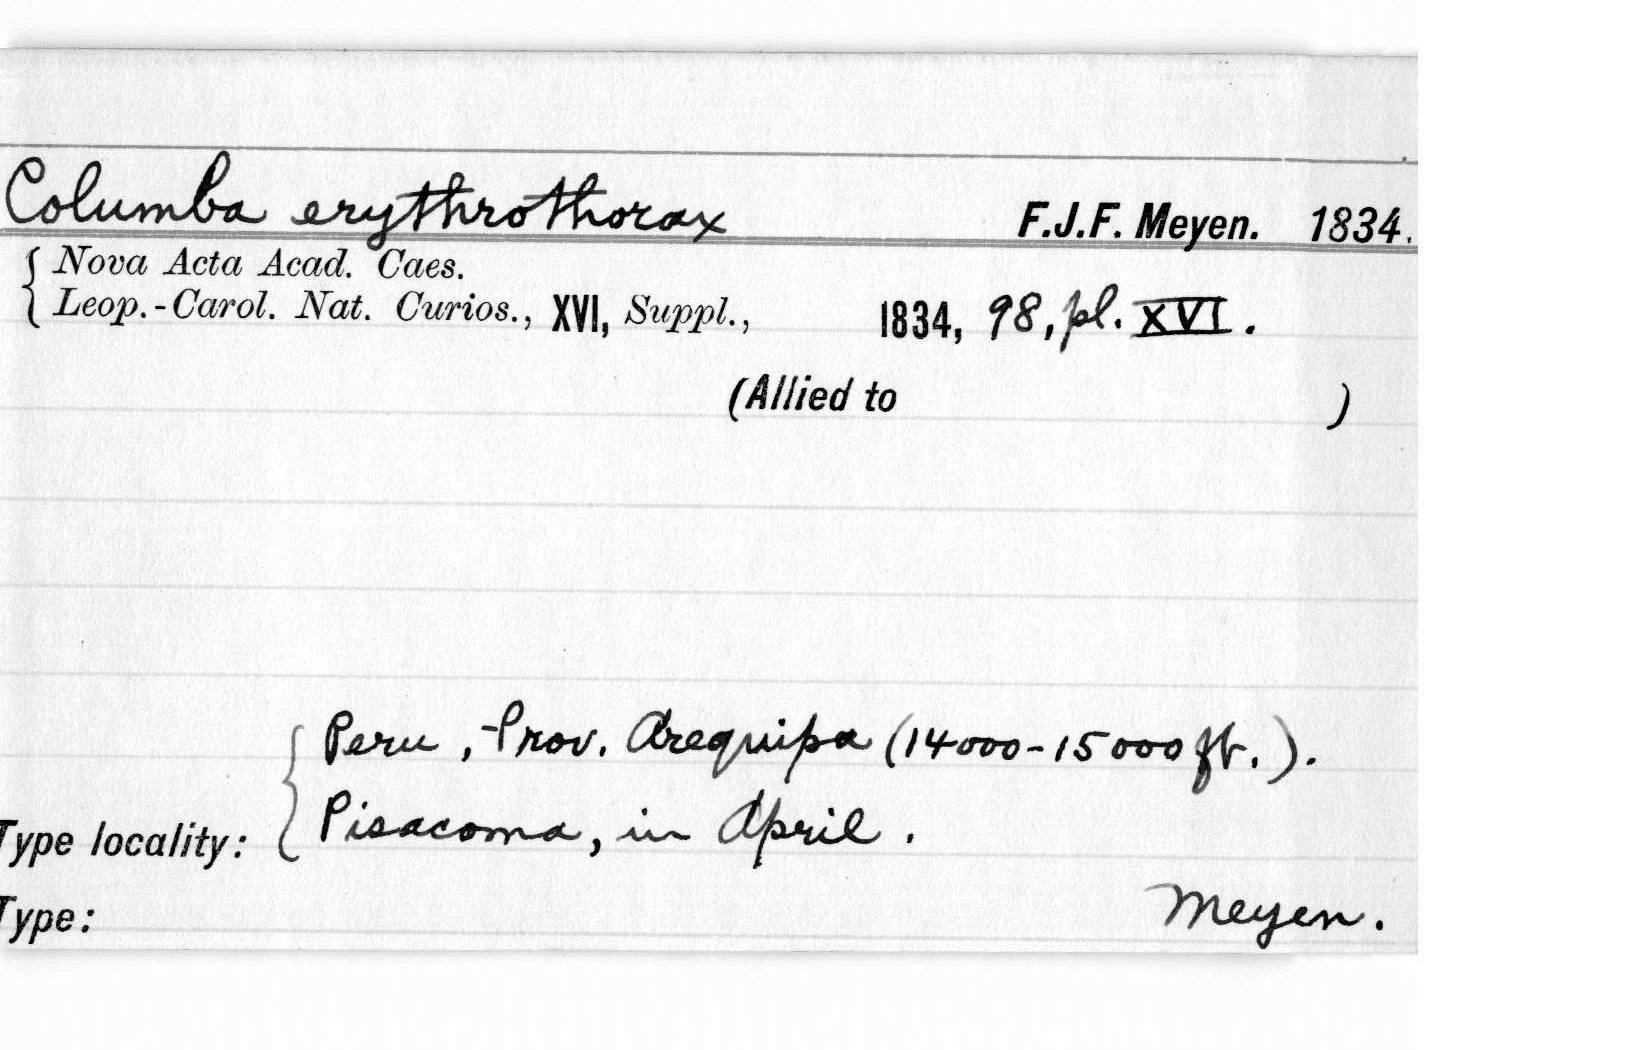 Columba erythrothorax F.J.F. Meyen. 1834.
Nova Acta Acad. Caes.
Leop.-Carol. Nat. Curios., XVI, Suppl., 1834, 98, pl. XVI.
(Allied to )
Peru, Prov. Arequipa (14000-15000 ft.).
Type locality: Pisacoma, in April.
Type: Meyen.